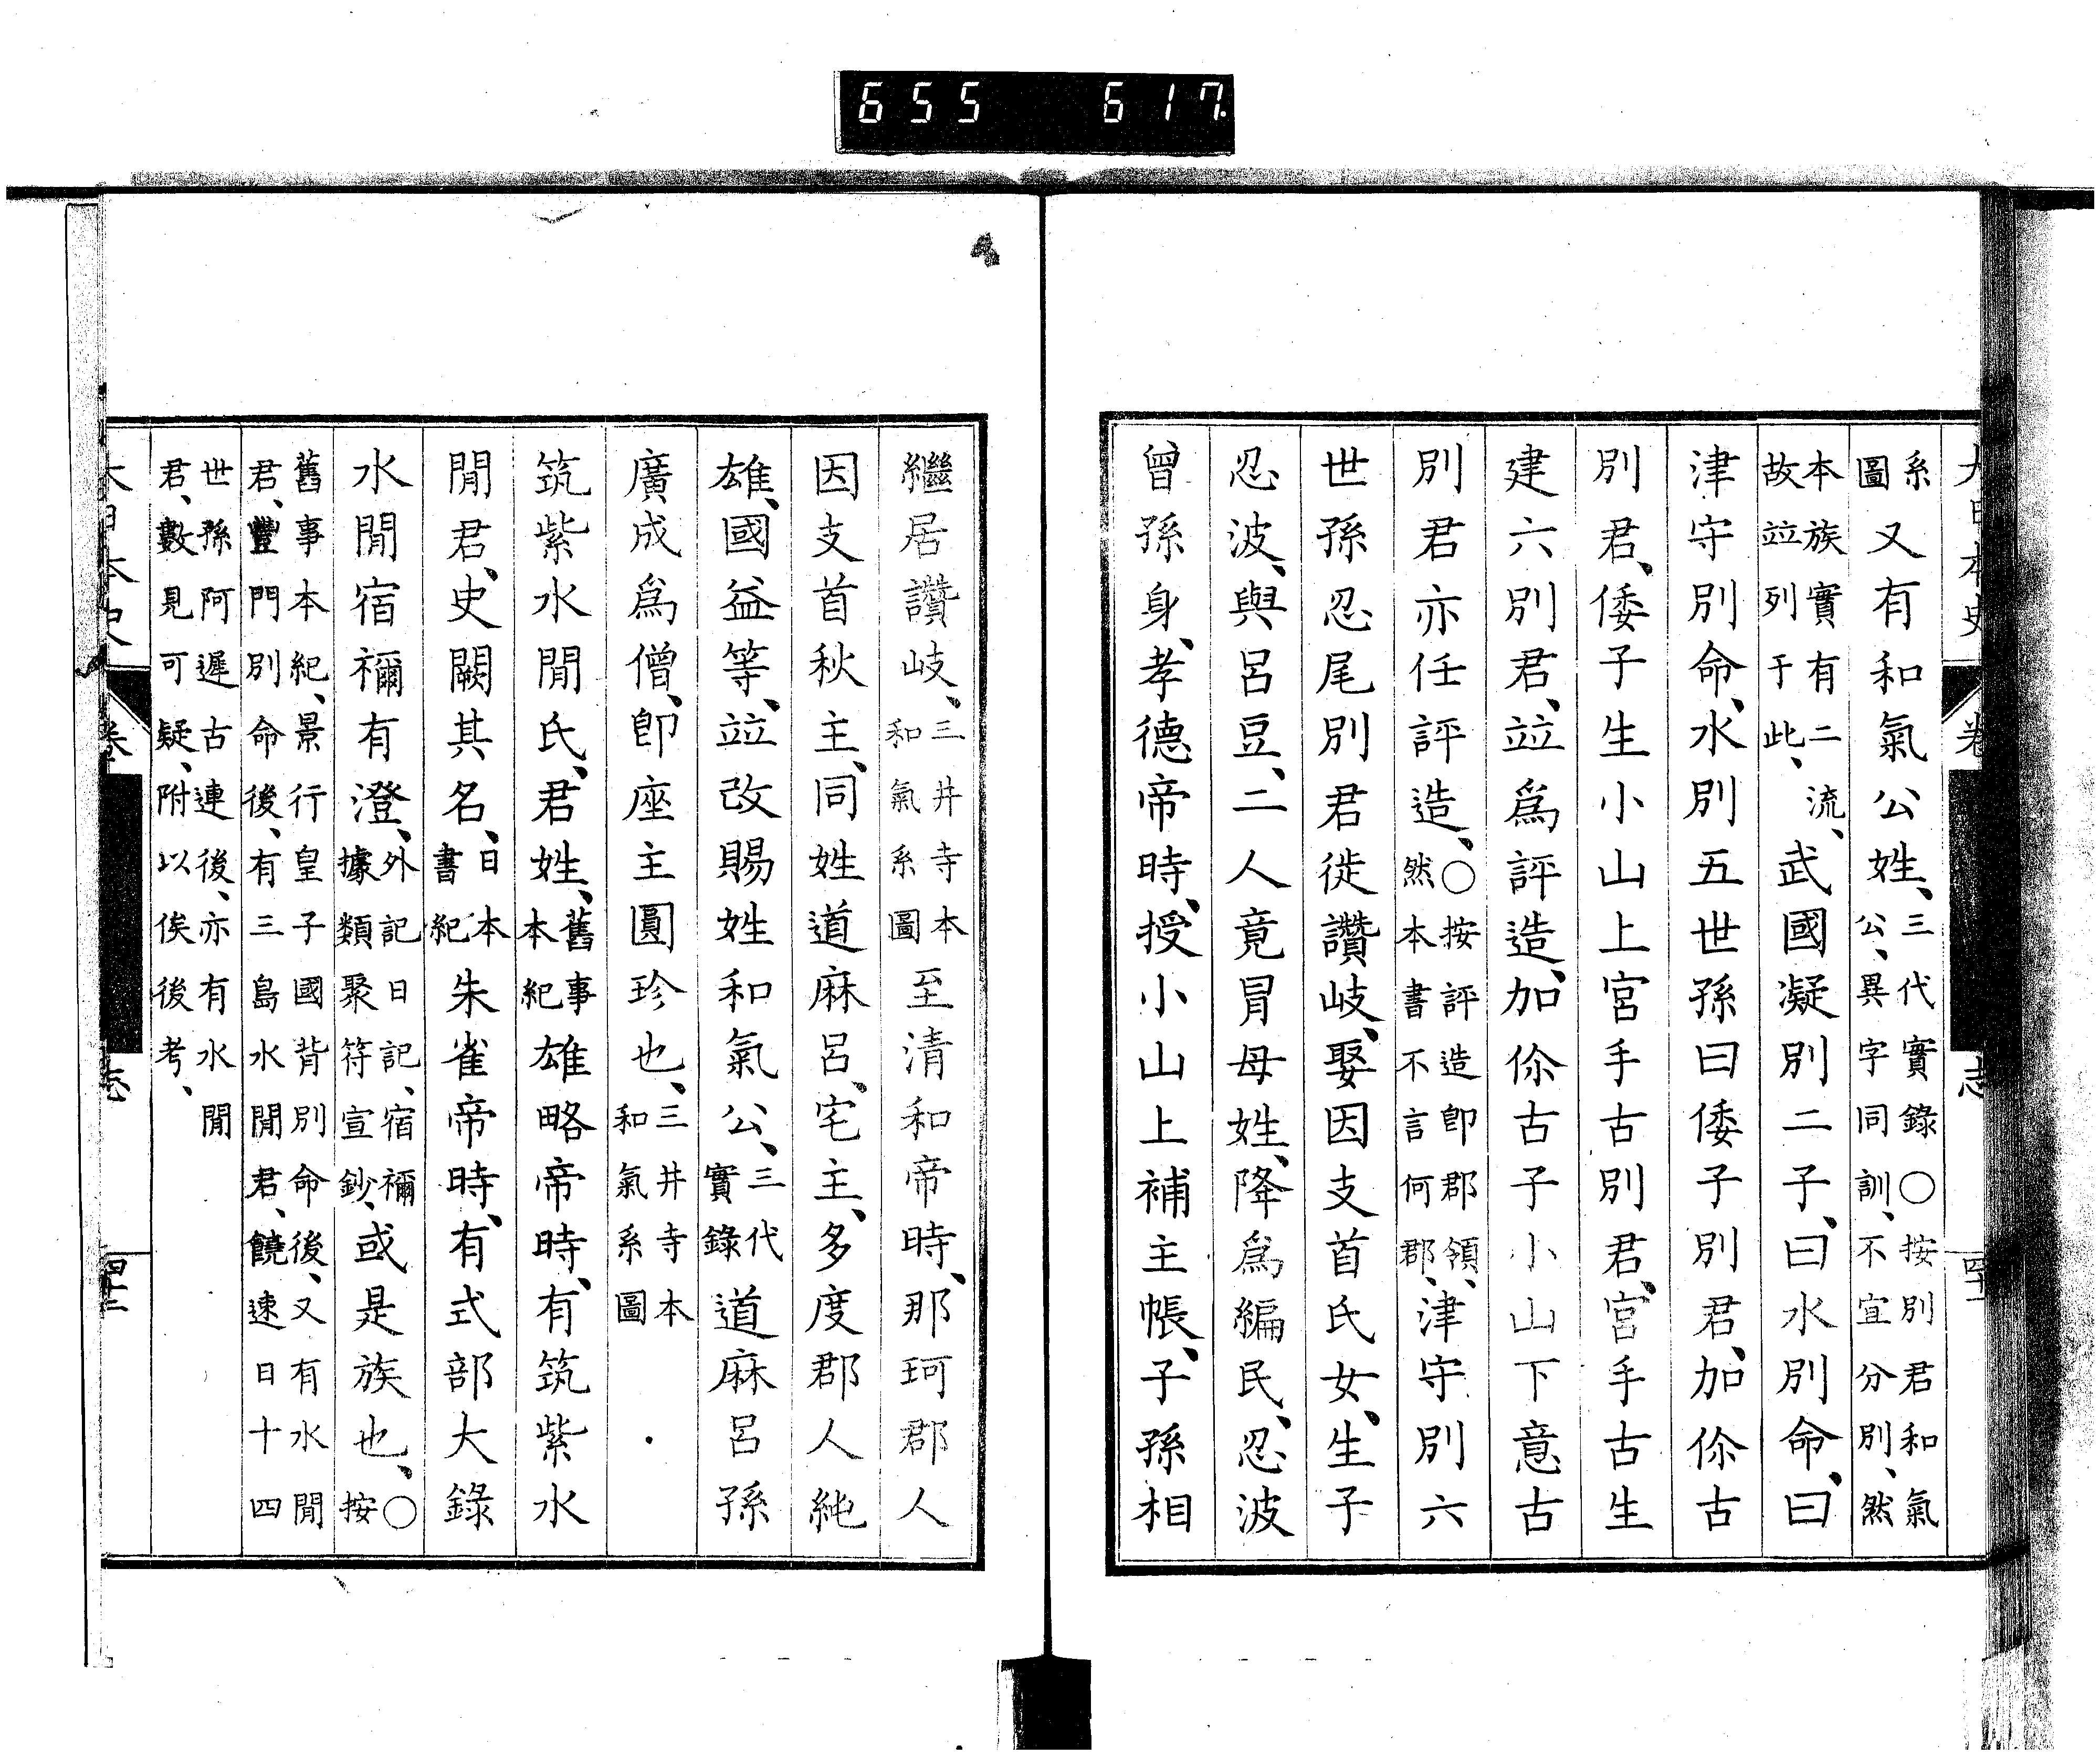 655 617
系圖又有和氣公姓、三代實錄○按別君和氣公、異字同訓、不宜分別、然
本族實有二流、故竝列于此、武國凝別二子、曰水別命、曰
津守別命、水別五世孫曰倭子別君、加㑱古
別君、倭子生小山上宮手古別君、宮手古生
建六別君、竝爲評造、加㑱古子小山下意古
別君亦任評造、○按評造卽郡領、然本書不言何郡、津守別六
世孫忍尾別君徙讚岐、娶因支首氏女、生子
忍波、與呂豆、二人竟冒母姓、降爲編民、忍波
曾孫身、孝德帝時、授小山上補主帳、子孫相
繼居讚岐、三井寺本和氣系圖至清和帝時、那珂郡人
因支首秋主、同姓道麻呂、宅主、多度郡人純
雄、國益等、竝改賜姓和氣公、三代實錄道麻呂孫
廣成爲僧、卽座主圓珍也、三井寺本和氣系圖
筑紫水閒氏、君姓、舊事本紀雄略帝時、有筑紫水
閒君、史闕其名、日本書紀朱雀帝時、有式部大錄
水閒宿禰有澄、外記日記、宿禰據類聚符宣鈔、或是族也、○按
舊事本紀、景行皇子國背別命後、又有水閒君、豐門別命後、有三島水閒君、饒速日十四
世孫阿遲古連後、亦有水閒君、數見可疑、附以俟後考、
大日本史 卷 志 四十二